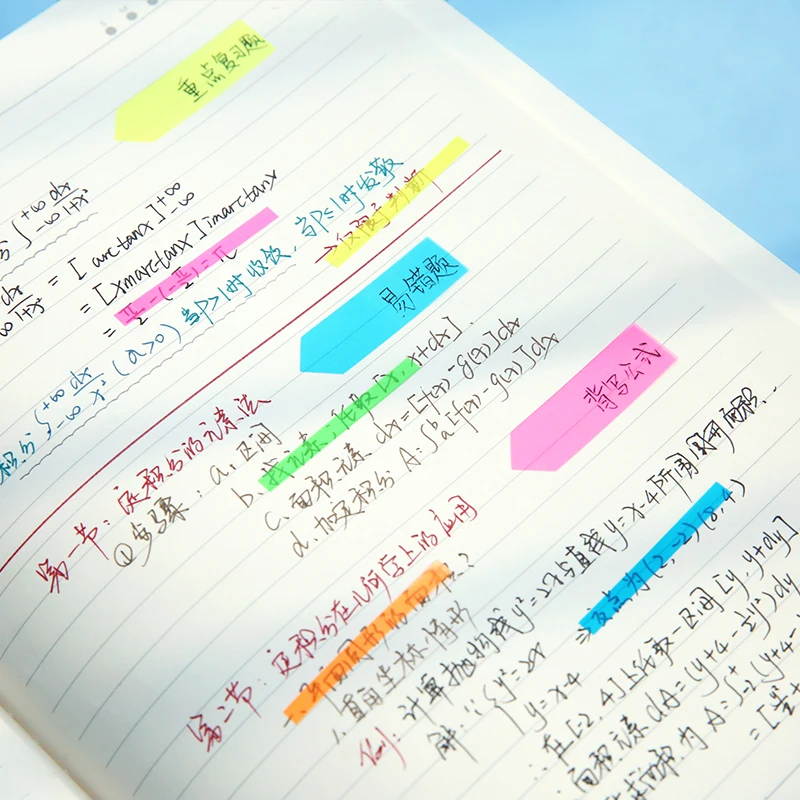 重点复习题
∫ +∞ -∞ dx/1+x²
dx/1+x² = [arctanx]+∞ -∞
= [limarctanx]limarctanx
= π/2-(-π/2)=π
积分∫ +∞ -∞ dx/x² (a>0) 当P>1时收敛, 当P≤1时发散
→仅限于判断
易错题
第一节: 定积分的元素法
①步骤: a. 区间
b. 找元素, 任取[x, x+dx].
c. 面积元素 dx=[f(x)-g(x)]dx
d. 加定积分 A: ∫ba[f(x)-g(x)]dx
背写公式
第二节: 定积分在几何学上的应用
一. 平面图形的面积
1. 直角坐标情形
例: 计算抛物线y²=2x与直线y=x-4所围图形面积.
解: ∵ {y²=2x
y=x-4 ⇒交点为(2,-2)(8,4)
∴在[-2,4]上任取一区间[y, y+dy]
面积元素dA=(y+4-½y²)dy
面积为A=∫-2(y+4-
=[y²/2+